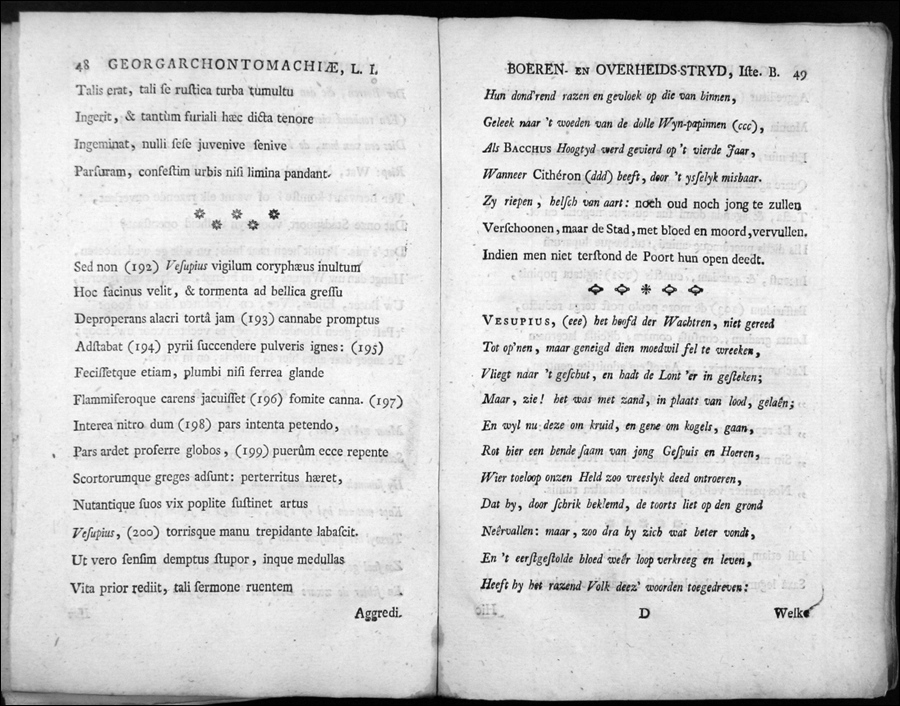 48 GEORGARCHONTOMACHIÆ, L. I.
Talis erat, tali ſe ruſtica turba tumultu
Ingerit, & tantùm furiali hæc dicta tenore
Ingeminat, nulli ſeſe juvenive ſenive
Parſuram, confeſtim urbis niſi limina pandant.
Sed non (192) Veſupius vigilum coryphæus inultum
Hoc facinus velit, & tormenta ad bellica greſſu
Deproperans alacri tortâ jam (193) cannabe promptus
Adſtabat (194) pyrii ſuccendere pulveris ignes: (195)
Feciſſetque etiam, plumbi niſi ferrea glande
Flammiferoque carens jacuiſſet (196) fomite canna. (197)
Interea nitro dum (198) pars intenta petendo,
Pars ardet proferre globos, (199) puerûm ecce repente
Scortorumque greges adſunt: perterritus hæret,
Nutantique ſuos vix poplite ſuſtinet artus
Veſupius, (200) torrisque manu trepidante labaſcit.
Ut vero ſenſim demptus ſtupor, inque medullas
Vita prior rediit, tali ſermone ruentem
Aggredi-
BOEREN- EN OVERHEIDS-STRYD, Iſte. B. 49
Hun dond'rend razen en gevloek op die van binnen,
Geleek naar 't woeden van de dolle Wyn-papinnen (ccc),
Als BACCHUS Hoogtyd werd gevierd op 't vierde Jaar,
Wanneer Cithéron (ddd) beeft, door 't ysſelyk misbaar.
Zy riepen, helſch van aart: noch oud noch jong te zullen
Verſchoonen, maar de Stad, met bloed en moord, vervullen.
Indien men niet terſtond de Poort hun open deedt.
VESUPIUS, (eee) het hoofd der Wachtren, niet gereed
Tot op'nen, maar geneigd dien moedwil fel te wreeken,
Vliegt naar 't geſchut, en hadt de Lont 'er in geſteken;
Maar, zie! het was met zand, in plaats van lood, gelaên;
En wyl nu deze om kruid, en gene om kogels, gaan,
Rot hier een bende ſaam van jong Geſpuis en Hoeren,
Wier toeloop onzen Held zoo vreeslyk deed ontroeren,
Dat hy, door ſchrik beklemd, de toorts liet op den grond
Neêrvallen: maar, zoo dra hy zich wat beter vondt,
En 't eerſtgeſtolde bloed weêr loop verkreeg en leven,
Heeft hy het razend Volk deez' woorden toegedreven:
D
Welke